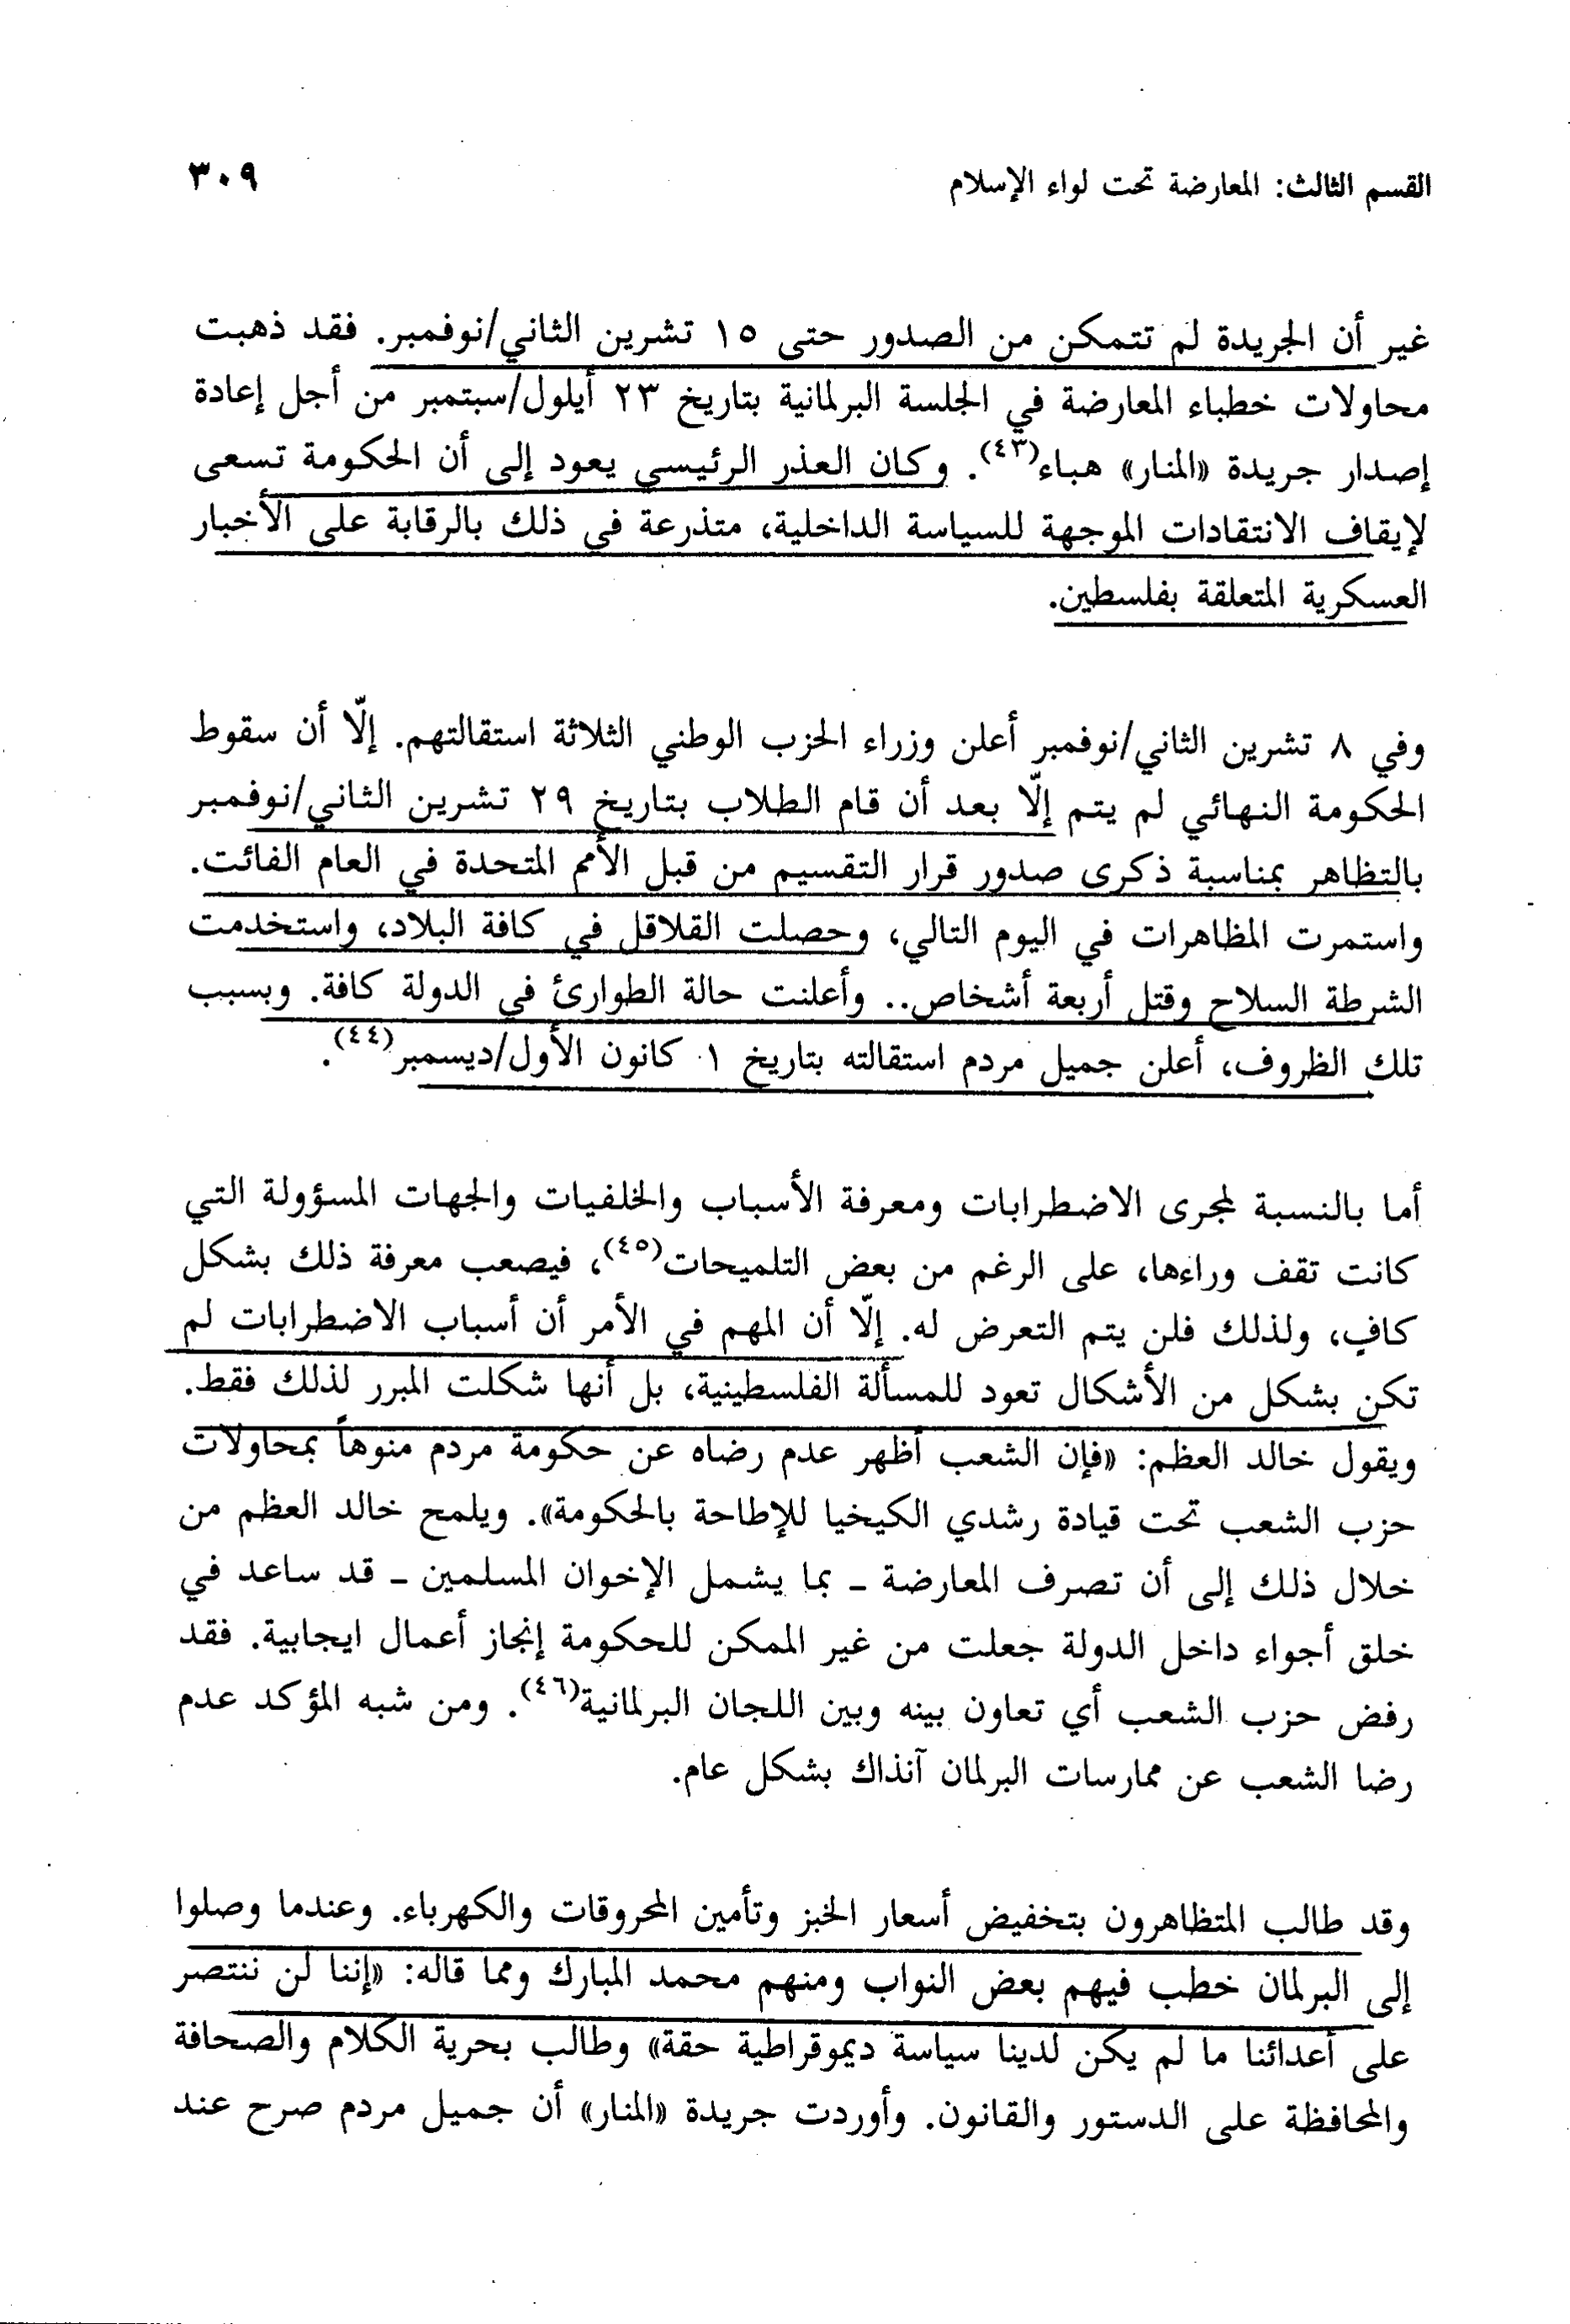 القسم الثالث: المعارضة تحت لواء الإسلام ٣٠٩
غير أن الجريدة لم تتمكن من الصدور حتى ١٥ تشرين الثاني/نوفمبر. فقد ذهبت
محاولات خطباء المعارضة في الجلسة البرلمانية بتاريخ ٢٣ أيلول/سبتمبر من أجل إعادة
إصدار جريدة «المنار» هباء(٤٣). وكان العذر الرئيسي يعود إلى أن الحكومة تسعى
لإيقاف الانتقادات الموجهة للسياسة الداخلية، متذرعة في ذلك بالرقابة على الأخبار
العسكرية المتعلقة بفلسطين.
وفي ٨ تشرين الثاني/نوفمبر أعلن وزراء الحزب الوطني الثلاثة استقالتهم. إلّا أن سقوط
الحكومة النهائي لم يتم إلّا بعد أن قام الطلاب بتاريخ ٢٩ تشرين الثاني/نوفمبر
بالتظاهر بمناسبة ذكرى صدور قرار التقسيم من قبل الأمم المتحدة في العام الفائت.
واستمرت المظاهرات في اليوم التالي، وحصلت القلاقل في كافة البلاد، واستخدمت
الشرطة السلاح وقتل أربعة أشخاص.. وأعلنت حالة الطوارئ في الدولة كافة. وبسبب
تلك الظروف، أعلن جميل مردم استقالته بتاريخ ١ كانون الأول/ديسمبر(٤٤).
أما بالنسبة لمجرى الاضطرابات ومعرفة الأسباب والخلفيات والجهات المسؤولة التي
كانت تقف وراءها، على الرغم من بعض التلميحات(٤٥)، فيصعب معرفة ذلك بشكل
كافٍ، ولذلك فلن يتم التعرض له. إلّا أن المهم في الأمر أن أسباب الاضطرابات لم
تكن بشكل من الأشكال تعود للمسألة الفلسطينية، بل أنها شكلت المبرر لذلك فقط.
ويقول خالد العظم: «فإن الشعب أظهر عدم رضاه عن حكومة مردم منوهاً بمحاولات
حزب الشعب تحت قيادة رشدي الكيخيا للإطاحة بالحكومة». ويلمح خالد العظم من
خلال ذلك إلى أن تصرف المعارضة ـ بما يشمل الإخوان المسلمين ـ قد ساعد في
خلق أجواء داخل الدولة جعلت من غير الممكن للحكومة إنجاز أعمال ايجابية. فقد
رفض حزب الشعب أي تعاون بينه وبين اللجان البرلمانية(٤٦). ومن شبه المؤكد عدم
رضا الشعب عن ممارسات البرلمان آنذاك بشكل عام.
وقد طالب المتظاهرون بتخفيض أسعار الخبز وتأمين المحروقات والكهرباء. وعندما وصلوا
إلى البرلمان خطب فيهم بعض النواب ومنهم محمد المبارك ومما قاله: «إننا لن ننتصر
على أعدائنا ما لم يكن لدينا سياسة ديموقراطية حقة» وطالب بحرية الكلام والصحافة
والمحافظة على الدستور والقانون. وأوردت جريدة «المنار» أن جميل مردم صرح عند